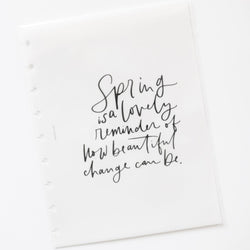 Spring
is a lovely
reminder of
how beautiful
change can be.